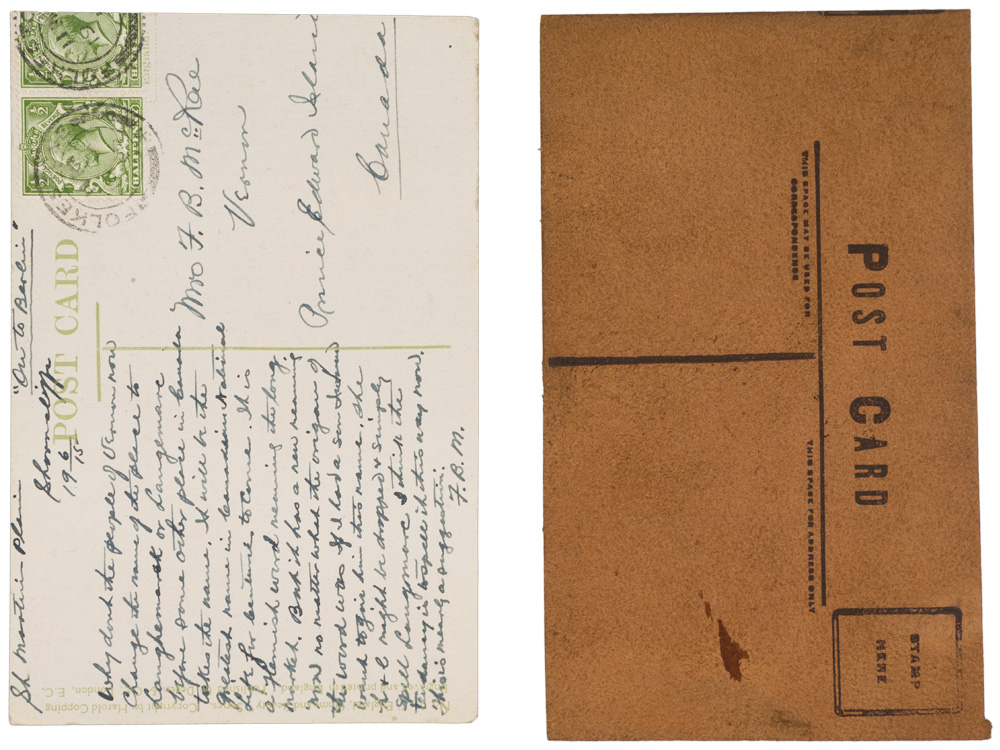 St. Martin's Plain "Out to Berlin"
Shorncliffe
19/6/15
POST CARD
Why don't the people of Vernon now
change the name of the place to
Langhemark or Langemarc
before some other place in Canada
takes the name. It will be the
greatest name in Canadian National
life for centuries to come. It is
a Flemish word meaning the long
market. But it has a new meaning
now no matter what the origin of
the word was. If I had a son I
want to give him this name. The
& k might be dropped & simply
spell Langmore. I think the
tendency is to spell it this way now.
This is merely a suggestion.
F. B. M.
Mrs F. B. McRae
Vernon
Prince Edward Island
Canada
HALFPENNY
FOLKE
Home and Beauty Series. Copyright by Harold Copping
Engraved and printed in England. Published by London, E.C.
POST CARD
THIS SPACE MAY BE USED FOR
CORRESPONDENCE
THIS SPACE FOR ADDRESS ONLY
STAMP
HERE